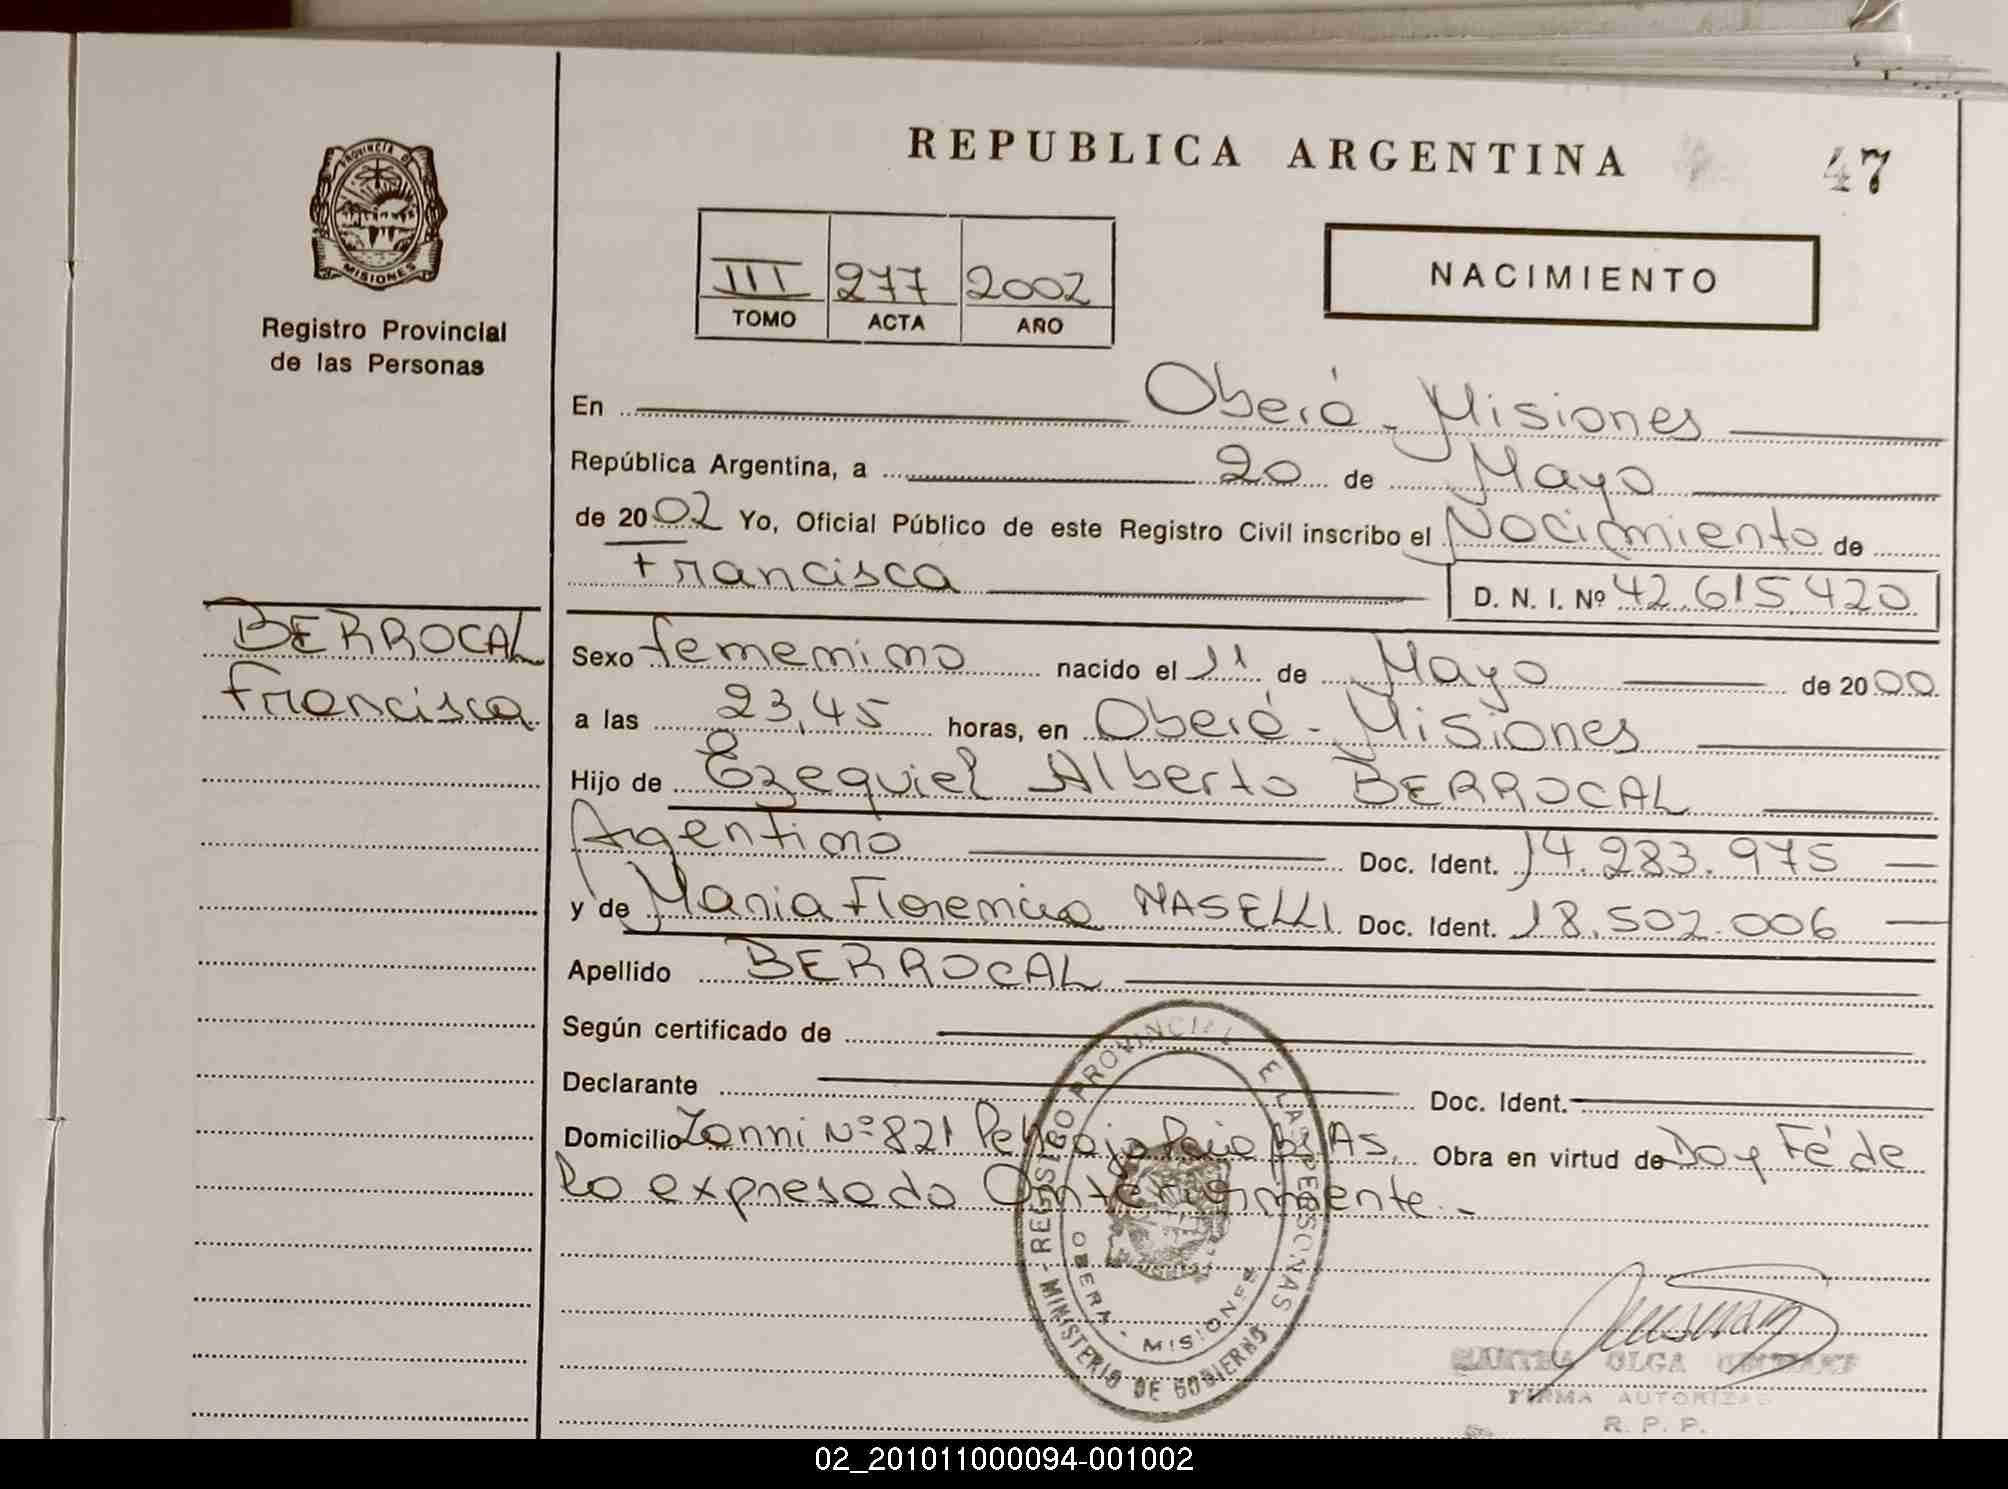 REPUBLICA ARGENTINA
47
PROVINCIA DE MISIONES
Registro Provincial
de las Personas
III 277 2002
TOMO ACTA AÑO
NACIMIENTO
En Oberá - Misiones
República Argentina, a 20 de Mayo
de 2002 Yo, Oficial Público de este Registro Civil inscribo el Nacimiento de
Francisca D. N. I. Nº 42.615.420
BERROCAL
Francisca
Sexo femenino nacido el 11 de Mayo de 2000
a las 23,45 horas, en Oberá - Misiones
Hijo de Ezequiel Alberto BERROCAL
Argentino Doc. Ident. 14.283.975
y de Maria Florencia MASELLI Doc. Ident. 18.502.006
Apellido BERROCAL
Según certificado de
Declarante Doc. Ident.
Domicilio Zanni Nº 821 Bs As. Obra en virtud de Doy Fé de
lo expresado Anteriormente.-
REGISTRO PROVINCIAL DE LAS PERSONAS
MINISTERIO DE GOBIERNO
OBERA - MISIONES
OLGA
FIRMA AUTORIZADA
R. P. P.
02_201011000094-001002